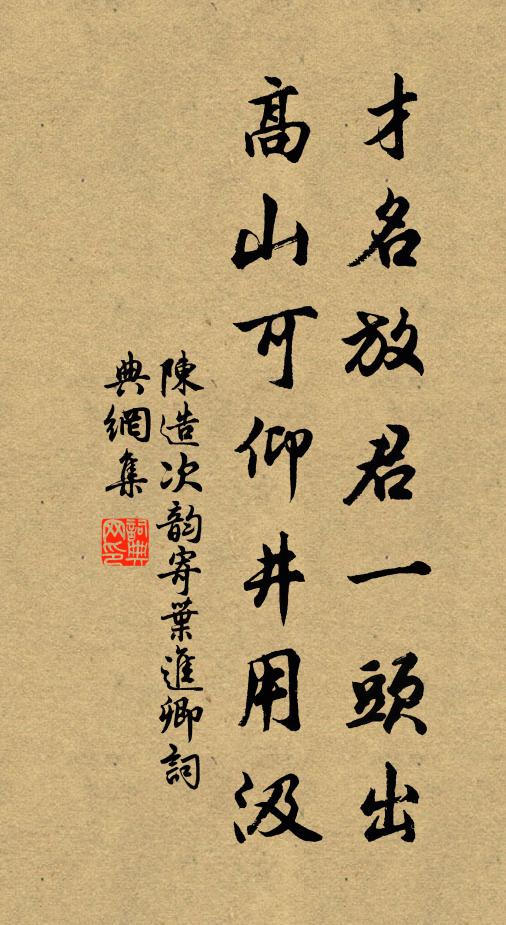 才名放君一頭出
高山可仰井用汲
陳造次韵寄葉進卿詞
典網集
詞典
网印